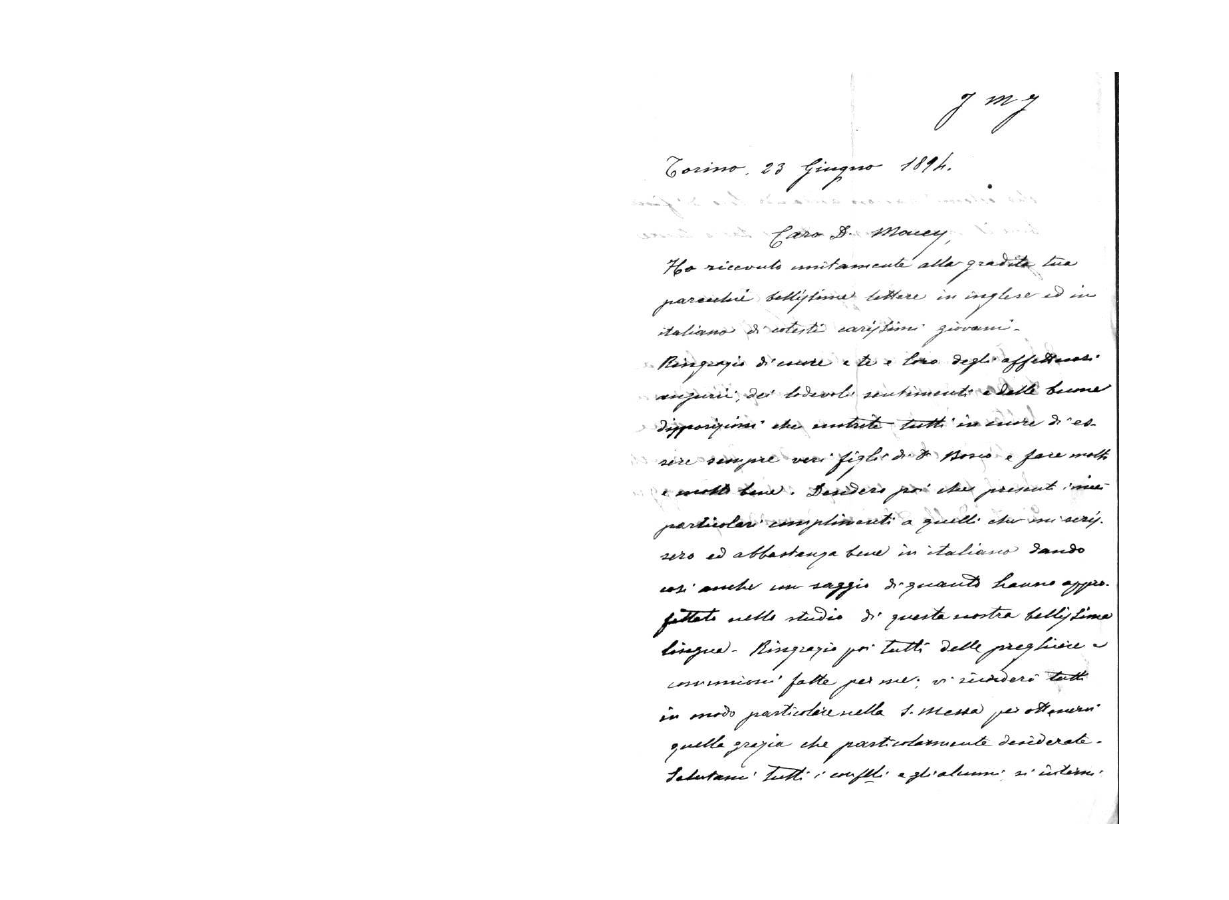 J M J
Torino, 23 Giugno 1894.
Caro D. Macey,
Ho ricevuto unitamente alla gradita tua
parecchie bellissime lettere in inglese ed in
italiano di cotesti carissimi giovani.
Ringrazio di cuore e te e loro degli affettuosi
augurii, dei lodevoli sentimenti e delle buone
disposizioni che nutrite tutti in cuore di es-
sere sempre veri figli di D. Bosco e fare molto
e molto bene. Desidero poi che presenti i miei
particolari complimenti a quelli che mi scris-
sero ed abbastanza bene in italiano dando
così anche un saggio di quanto hanno appro-
fittato nello studio di questa nostra bellissima
lingua. Ringrazio poi tutti delle preghiere e
comunioni fatte per me; vi ricorderò tutti
in modo particolare nella S. Messa per ottenervi
quella grazia che particolarmente desiderate.
Salutami tutti i conflli e gli alunni sì interni